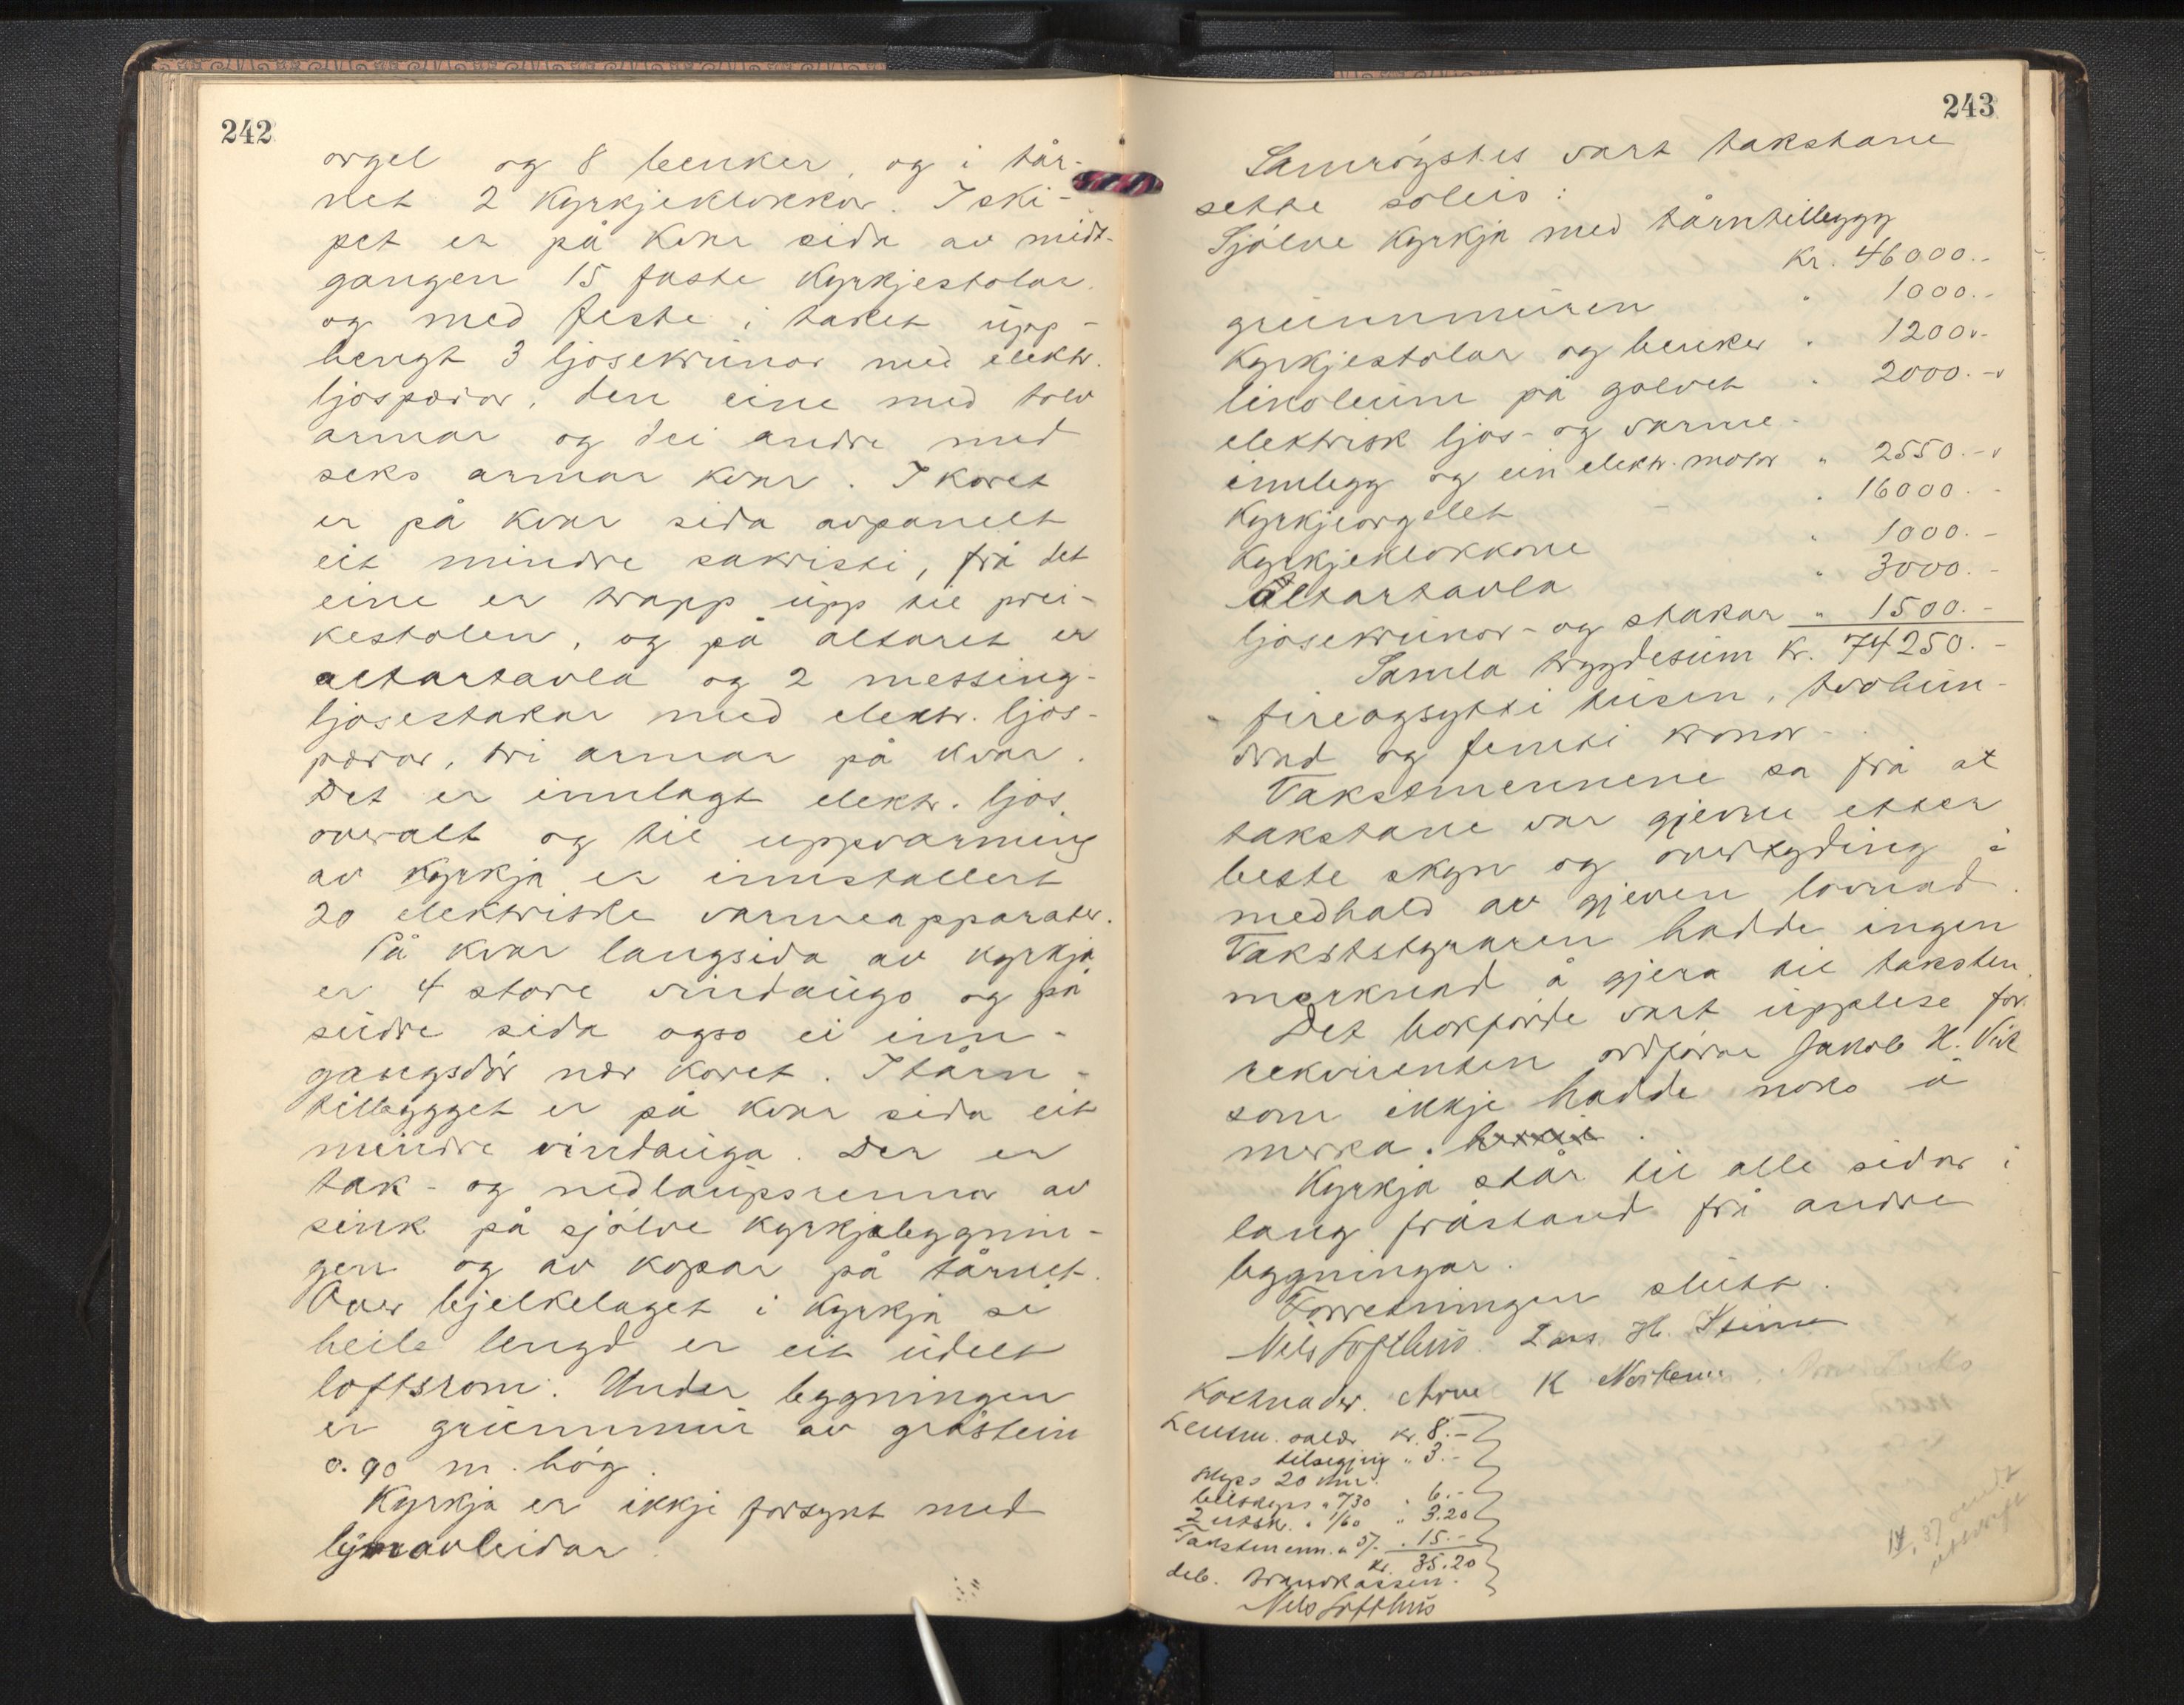 242
orgel og 8 benker, og i tår-
net 2 kyrkjeklokkor. I ski-
pet er på kvar sida av midt-
gangen 15 faste kyrkjestolar
og med feste i taket upp-
hengt 3 ljosekrunor med elektr.
ljosperor, den eine med tolv
armar og dei andre med
seks armar kvar. I koret
er på kvar sida avpanelt
eit mindre sakristi, frå det
eine er trapp upp til prei-
kestolen, og på altaret er
altartavla og 2 messing-
ljosestakar med elektr. ljos-
peror, tri armar på kvar.
Det er innlagt elektr. ljos
overalt og til uppvarming
av kyrkja er innstallert
20 elektriske varmeapparater.
På kvar langsida av kyrkja
er 4 store vindaugo og på
sudre sida ogso ei inn-
gangsdór nær koret. I tårn-
tillegget er på kvar sida eit
mindre vindauga. Der er
tak- og nedlaupsrennor av
sink på sjólve kyrkjebygnin-
gen og av kopar på tårnet.
Over bjelkelaget i kyrkja si
heile lengd er eit udelt
loftsrom. Under bygningen
er grunnmur av gråstein
0.90 m. hóg.
Kyrkja er ikkje forsynt med
lynavleidar.
243
Samróystes vart takstane
sette soleis:
Sjólve kyrkja med tårntillegg
kr. 46000.-
grunnmuren " 1000.-
Kyrkjestolar og benker " 1200.-
linoleum på golvet " 2000.-
elektrisk ljos- og varme-
innlegg og ein elektr. motor " 2550.-
Kyrkjeorgelet " 16000.-
Kyrkjeklokkone " 1000.-
Altartavla " 3000.-
ljosekrunor- og stakar " 1500.-
Samla trygdesum kr. 74250.-
fireogsytti tusen, tvohun-
drad og femti kronor.
Takstmennene sa frå at
takstane var gjevne etter
beste skyn og overtyding i
medhald av gjeven lovnad.
Takststyraren hadde ingen
merknad å gjera til taksten.
Det bokfórde vart upplese for
rekvirenten ordfórar Jakob H. Vik
som ikkje hadde noko å
merka.
Kyrkja står til alle sidor i
lang fråstand frå andre
bygningar.
Forretningen slutt.
Nils Lofthus. Lars H. Steine
Kostnader. Arne K
Lensm. salær kr. 8.-
tilsegjing " 3.-
skyss 20 km.
bilskyss " 730 " 6.-
2 utskr. " 1/60 " 3.20
Takstmenn. " 5/- " 15.-
kr. 35.20
deb. Brandkassen.
Nils Lofthus
utskrift